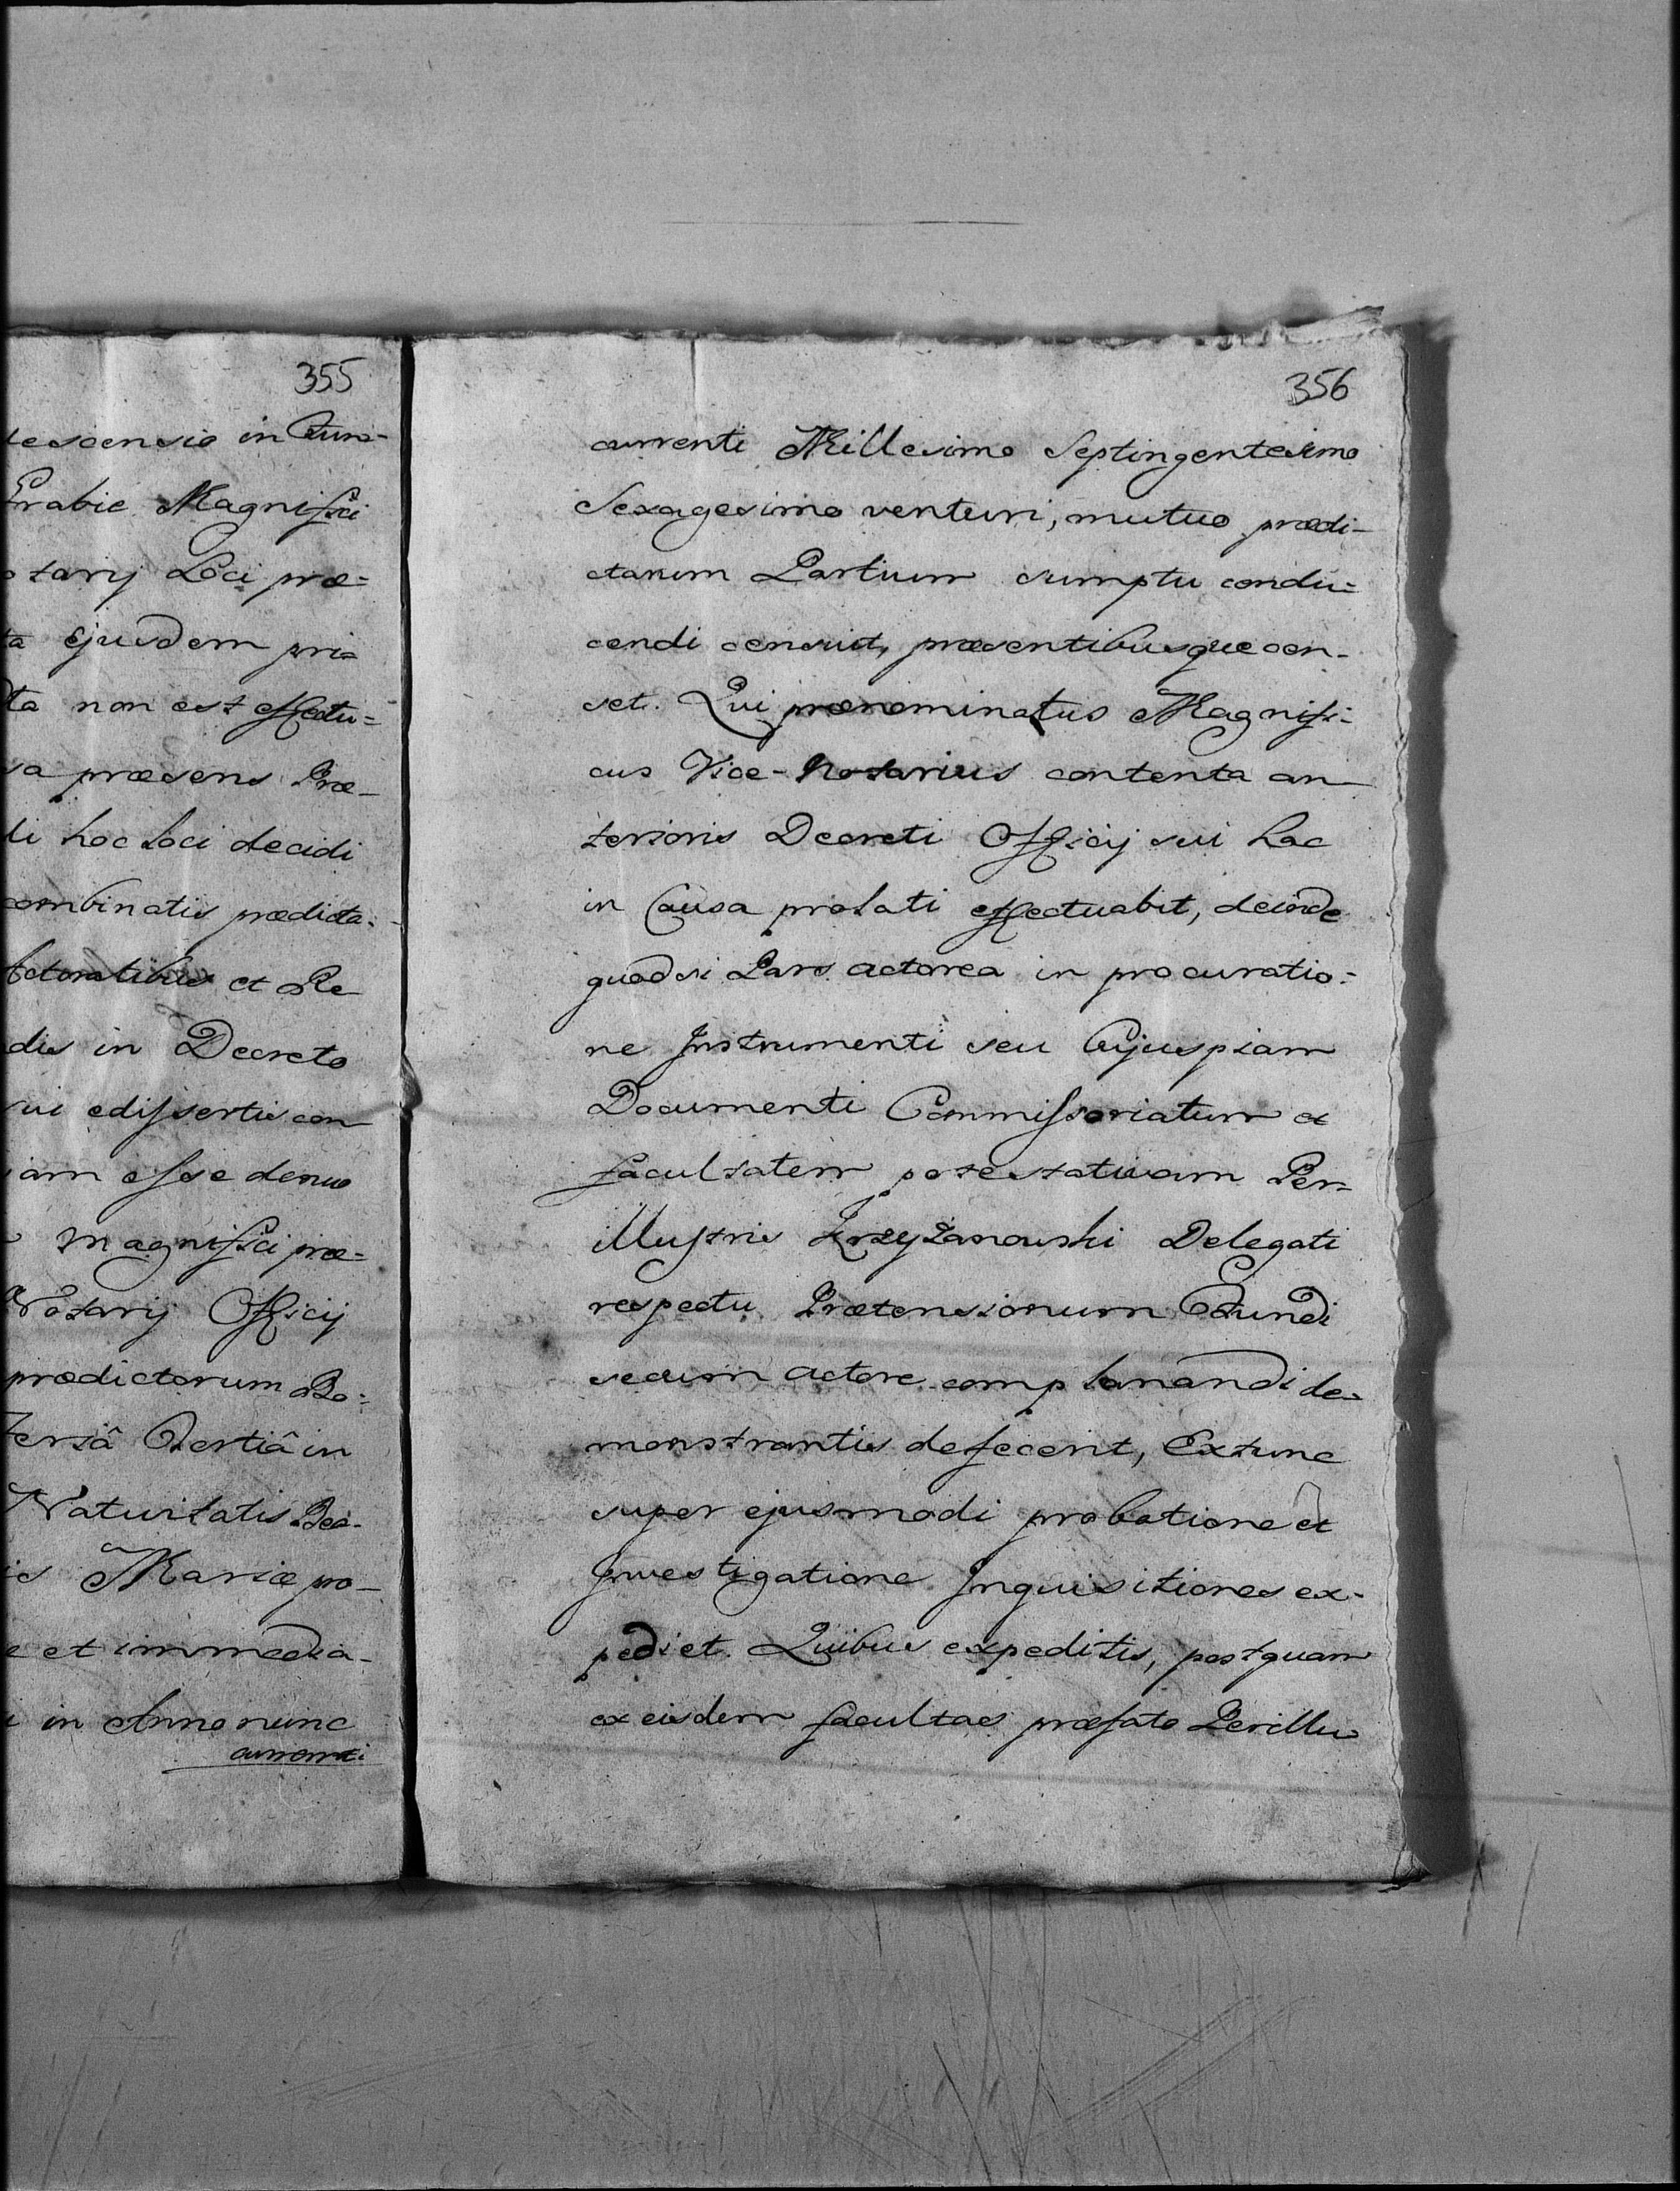 355
descensio in Cura-
Grabie Magnifici
otarij Loci præ=
ta ejusdem pri=
ta non est effectu=
sa præsens Præ-
li hoc loci decidi
combinatis prædicta-
ctoratibus et Re
dis in Decreto
sui edissertis con
iam esse denuo
Magnifici præ=
Notarij Officij
prædictorum Bo=
feriâ Tertiâ in
Nativitatis Bea-
is Mariæ pro-
e et immedia-
i in Anno nunc
currenti
356
currenti Millesimo Septingentesimo
Sexagesimo venturi, mutuo prædi-
ctarum Partium sumptu condu=
cendi censuit, præsentibusque cen-
set. Qui prænominatus Magnifi=
cus Vice-Notarius contenta an
terioris Decreti Officij sui hac
in Causa prolati effectuabit, deinde
quodsi Pars actorea in procuratio=
ne Instrumenti seu Cujuspiam
Documenti Commissoriatum et
facultatem potestativam Per=
illustris Krzyżanowski Delegati
respectu Prætensionum Edundi
secum actore complanandi de=
monstrantis defecerit, Extunc
super ejusmodi probatione et
Investigatione Inquisitiones ex-
pediet. Quibus expeditis, postquam
ex eisdem facultas præfato Perillu